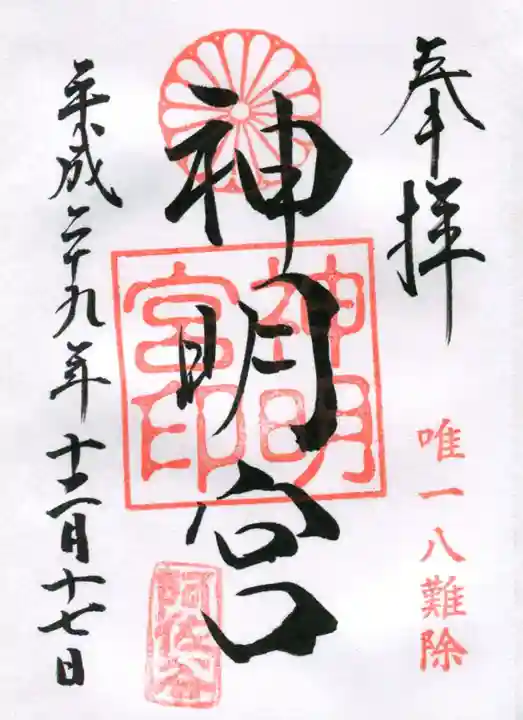 奉拝
唯一八難除
神明宮
神明宮印
阿佐谷
平成二十九年十二月十七日